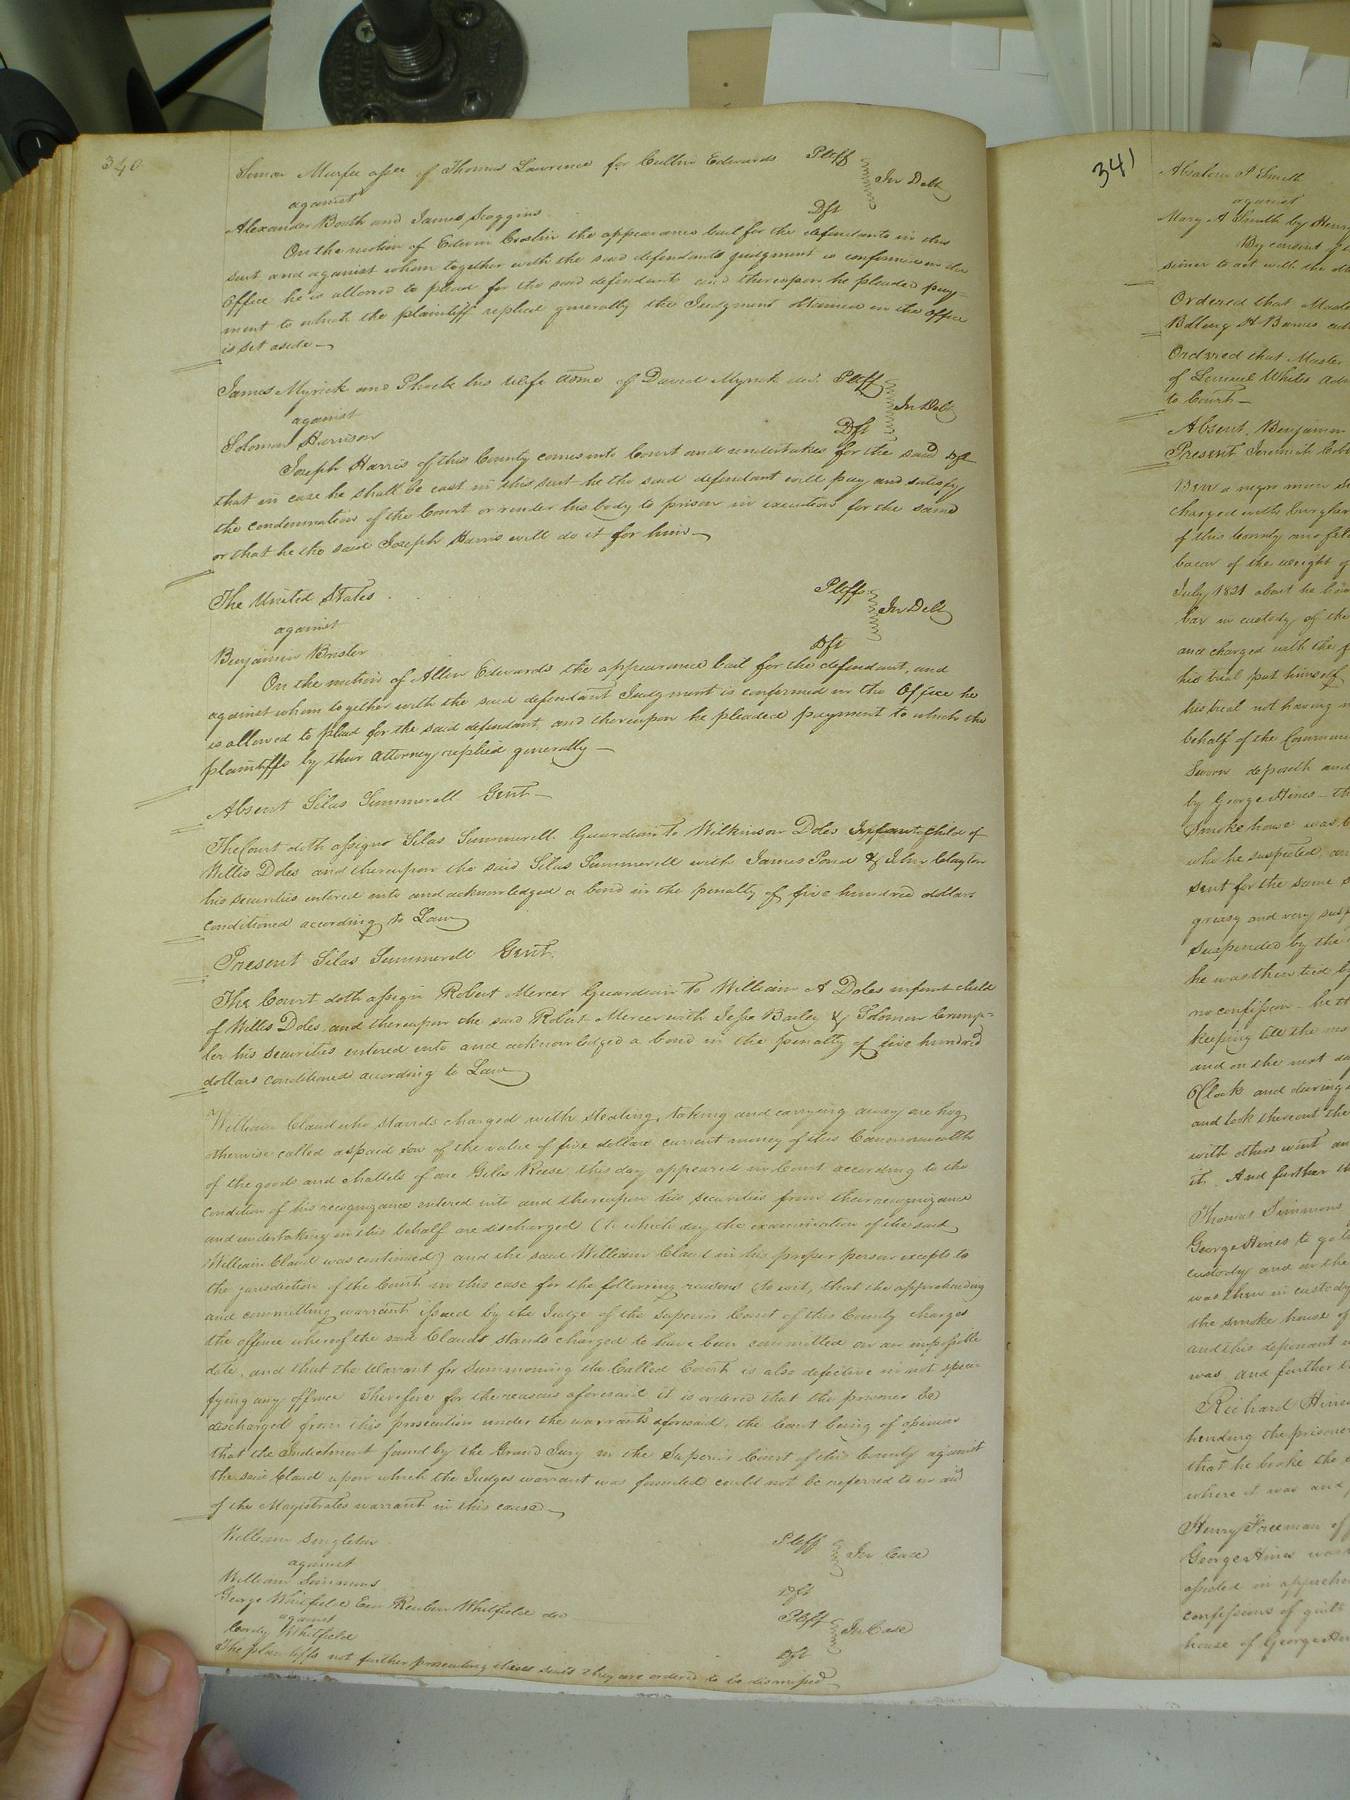 340
Simon Murfee assee of Thomas Lawrence for Cullin Edwards Pltff
against In Debt
Alexander Booth and James Scoggins Dft
On the motion of Edwin the appearance bail for the defendants in this
suit and against whom together with the said defendants judgment is confirmed in the
Office he is allowed to plead for the said defendants and thereupon he pleaded pay-
ment to which the plaintiff replied generally the Judgment obtained in the office
is set aside
James Myrick and Phoebe his wife admx of David Myrick dec. Pltff
against In Debt
Solomon Harrison Dft
Joseph Harris of this County comes into Court and undertakes for the said dft
that in case he shall be cast in this suit he the said defendant will pay and satisfy
the condemnation of the Court or render his body to prison in execution for the same
or that he the said Joseph Harris will do it for him
The United States Pltff
against In Debt
Benjamin Dft
On the motion of Allen Edwards the appearance bail for the defendant, and
against whom together with the said defendant Judgment is confirmed in the Office he
is allowed to plead for the said defendant, and thereupon he pleaded payment to which the
plaintiffs by their attorney replied generally
Absent Silas Summerell Gent
The Court doth assign Silas Summerell Guardian to Wilkinson Doles Infant child of
Willis Doles and thereupon the said Silas Summerell with James Pond & John Clayton
his securities entered into and acknowledged a bond in the penalty of five hundred dollars
conditioned according to Law
Present Silas Summerell Gent.
The Court doth assign Robert Mercer Guardian to William A Doles infant child
of Willis Doles, and thereupon the said Robert Mercer with Jesse Bailey & Solomon Crump-
ler his securities entered into and acknowledged a bond in the penalty of five hundred
dollars conditioned according to Law
William Claud who stands charged with stealing, taking and carrying away one hog
otherwise called a spaid sow of the value of five dollars current money of this Commonwealth
of the goods and chattels of one Giles Reese this day appeared in Court according to the
condition of his recognizance entered into and thereupon his securities from their recognizance
and undertaking in this behalf are discharged (to which day the examination of the said
William Claud was continued) and the said William Claud in his proper person excepts to
the jurisdiction of the Court in this case for the following reasons (to wit, that the apprehending
and committing warrant issued by the Judge of the Superior Court of this County charges
the offence whereof the said Claud stands charged to have been committed on an impossible
date, and that the Warrant for Summoning the Called Court is also defective in not speci-
fying any offence Therefore for the reasons aforesaid it is ordered that the prisoner be
discharged from this prosecution under the warrants aforesaid, the Court being of opinion
that the Indictment found by the Grand Jury in the Superior Court of this County against
the said Claud upon which the Judges warrant was founded could not be referred to in aid
of the Magistrates warrant in this cause
William Singleton Pltff
against In Case
William Simmons Dft
George Whitfield Exr Reuben Whitfield dec Pltff
against In Case
Whitfield Dft
The plaintiffs not further prosecuting these suits they are ordered to be dismissed
341
Absalom P Smith
against
Mary A Smith by Henry
By consent of
sioner to act with the
Ordered that
Barnes
Ordered that Master
of Lemuel Whites
to Court
Absent Benjamin
Present Jeremiah Cobb
Ben a negro man
charged with burglary
of this County and
bacon of the weight of
July 1821 about the
bar in custody of the
and charged with the
his trial put himself
his trial not having
behalf of the Common
Sworn deposeth and
by George Hines
Smoke house was
who he suspected, and
sent for the same
greasy and very
suspended by the
he was then tied
no confession
keeping till the
and on the next day
OClock and during
and took thereout the
with others went and
it. And further
Thomas Simmons
George Hines to go to
custody and on the
was then in custody
the smoke house of
and this deponent
was and further
Richard
hending the prisoner
that he broke the
where it was and
Henry Freeman of
George Hines was
assisted in
confessions of guilt
house of George